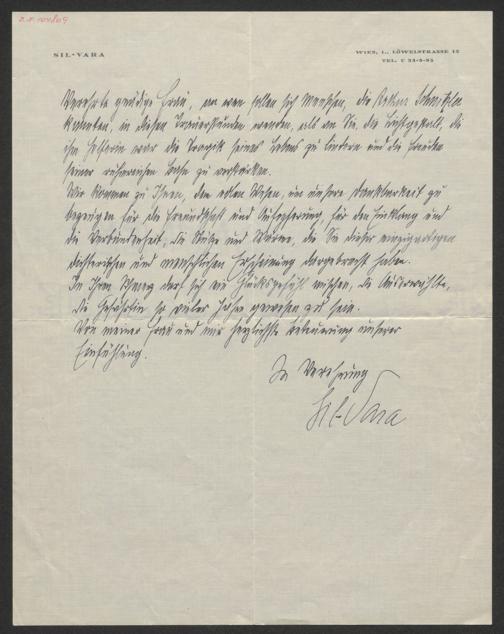 SIL-VARA
WIEN, I., LÖWELSTRASSE 12
TEL. U 23-5-83
Verehrte gnädige Frau, an wen sollen sich Menschen, die Arthur Schnitzler
kannten, in diesen Trauerstunden wenden, als an Sie, die Lichtgestalt, die
ihm Helferin war die Tragik seines Lebens zu lindern und die Freuden
seiner ruhmreichen zu verstärken.
Wir kommen zu Ihnen, dem edlen Wesen, um unsere Dankbarkeit zu
bezeigen für die Freundschaft und Aufopferung, für den Einklang und
die Verbundenheit, die Stütze und Wärme, die Sie dieser einzigartigen
dichterischen und menschlichen Erscheinung dargebracht haben.
In Ihren darf sich ein Glücksgefühl mischen, die Auserwählte,
die Gefährtin so vieler Jahre gewesen zu sein.
Von meiner Frau und mir herzlichste Beteuerung unserer
Einfühlung.
In Verehrung
Sil-Vara